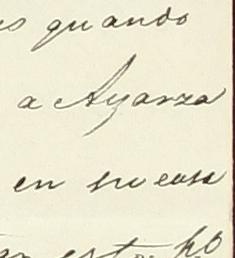 quando
a Ayarza
en su casa